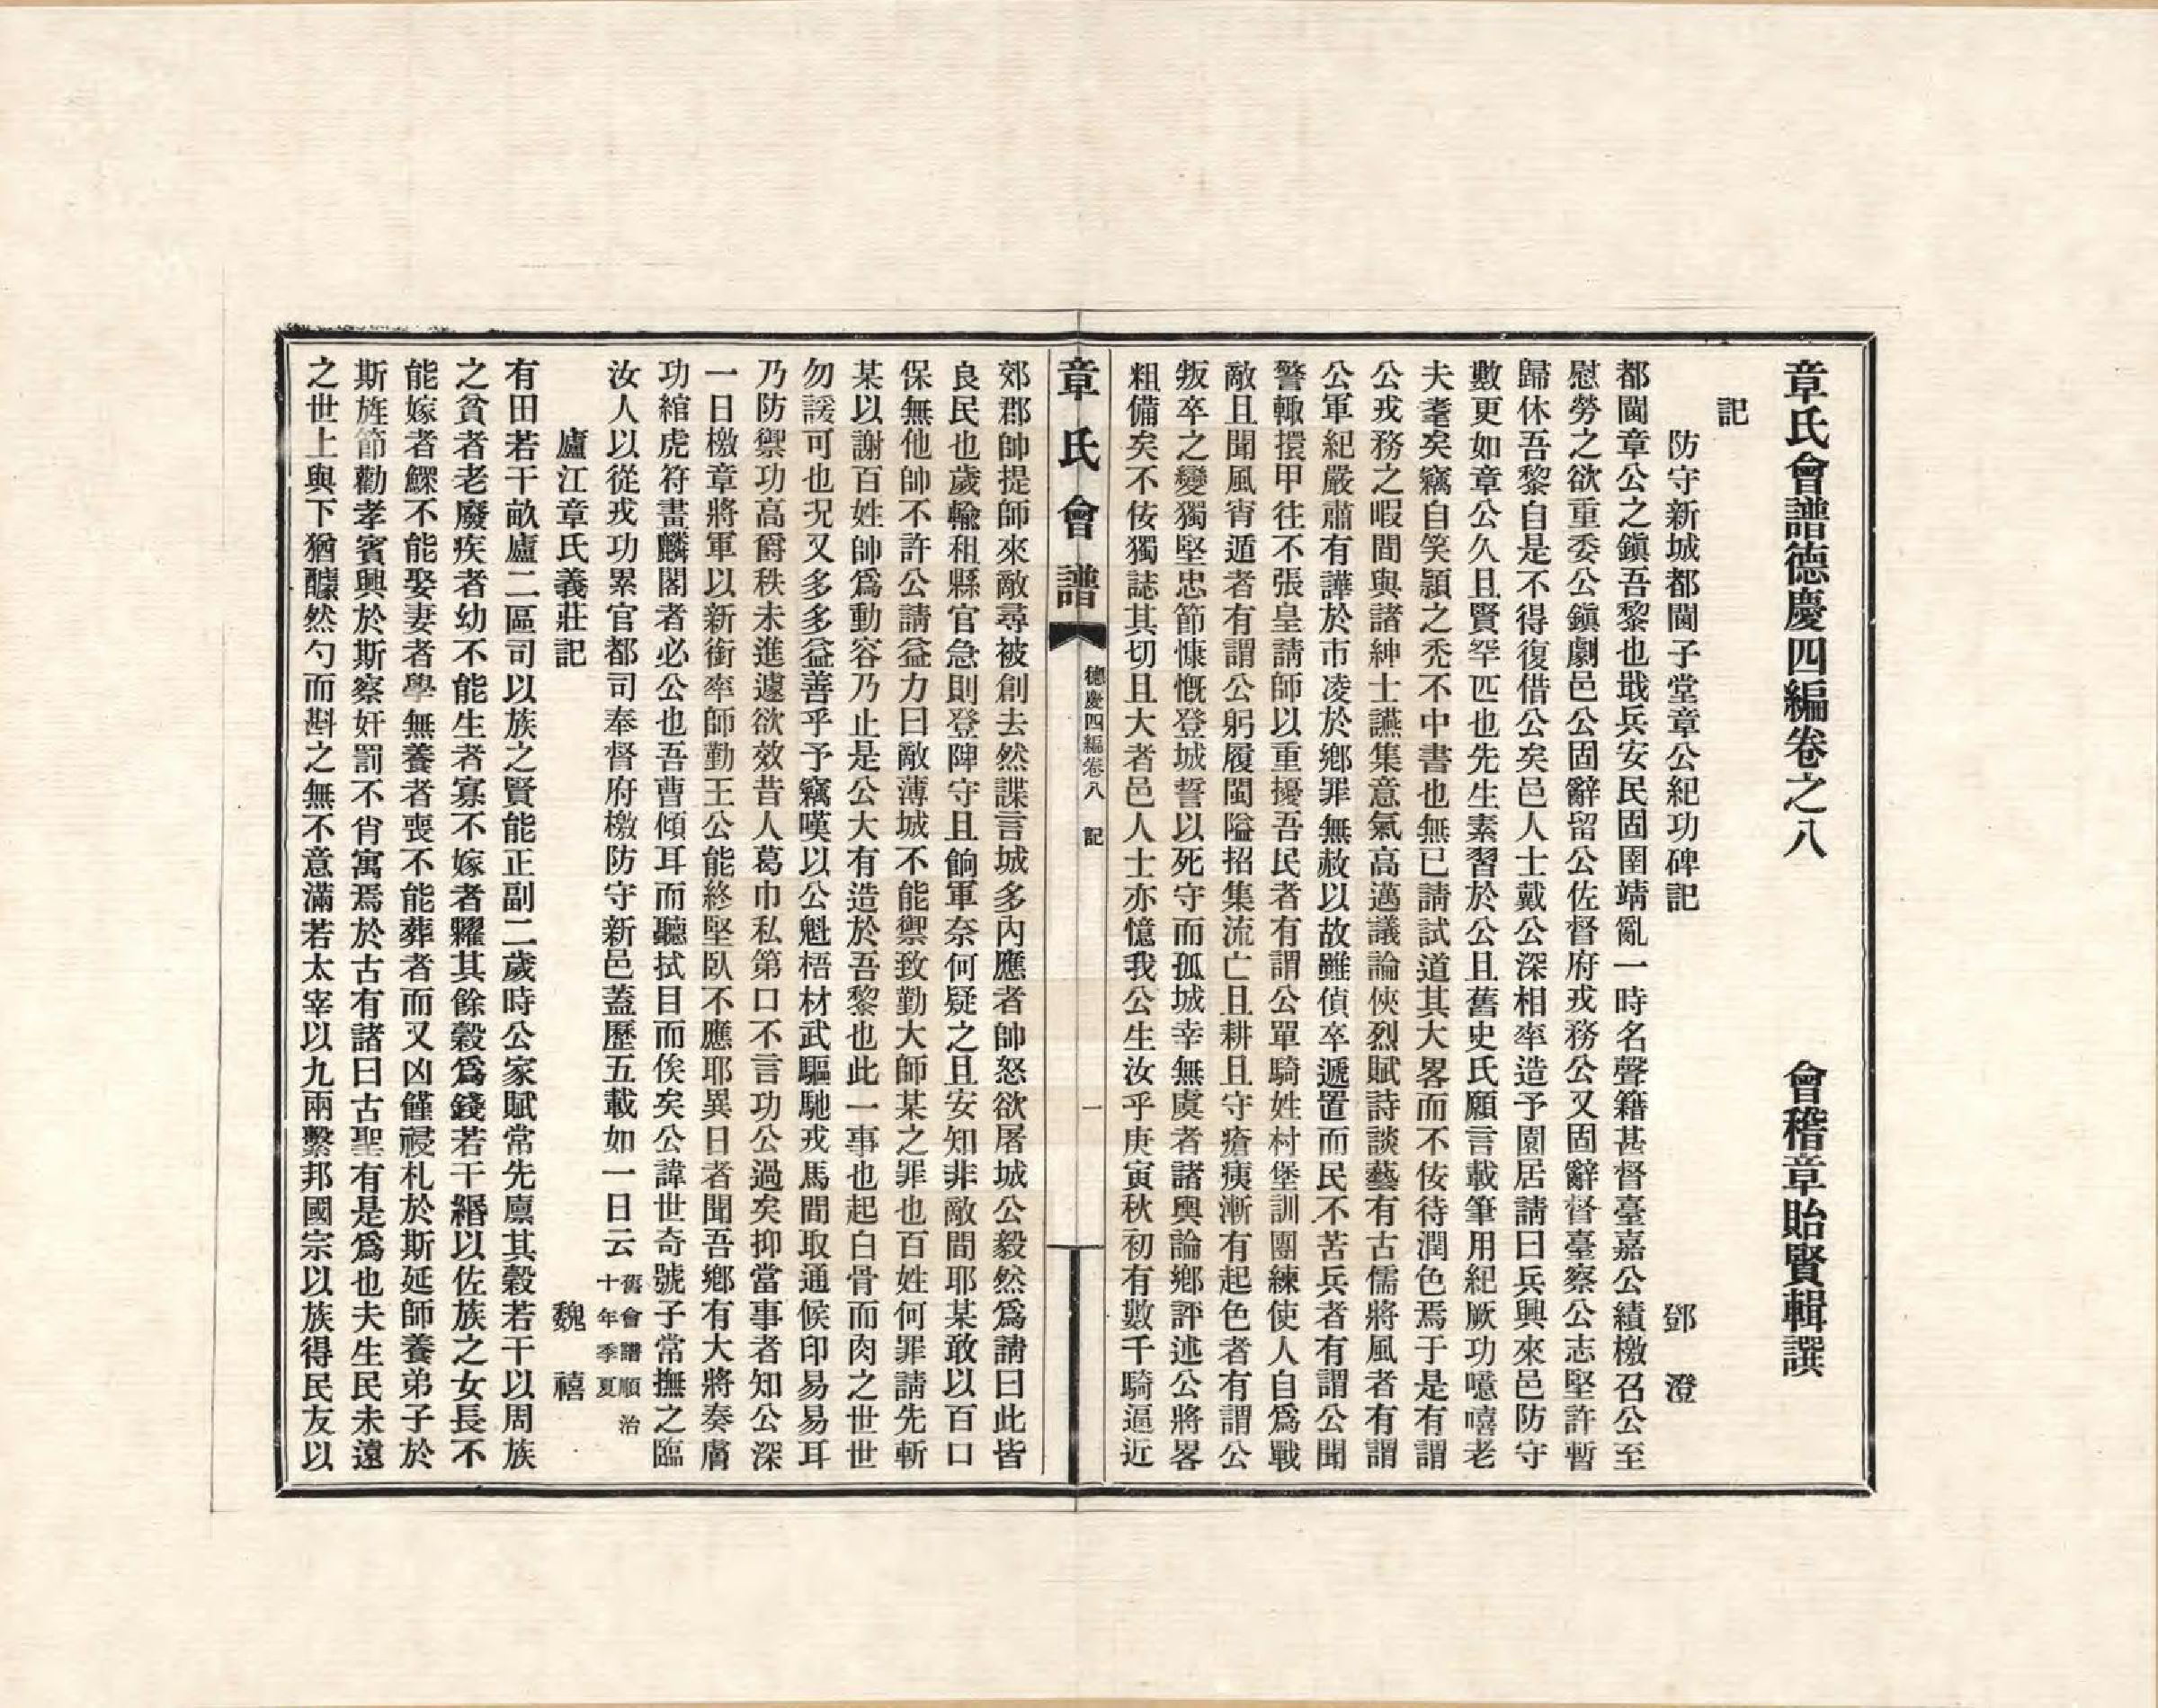 章氏會譜德慶四編卷之八　會稽章貽賢輯譔
記
防守新城都閫子堂章公紀功碑記　鄧　澄
都閫章公之鎭吾黎也戢兵安民固圉靖亂一時名聲籍甚督臺嘉公績檄召公至
慰勞之欲重委公鎭劇邑公固辭留公佐督府戎務公又固辭督臺察公志堅許暫
歸休吾黎自是不得復借公矣邑人士戴公深相率造予園居請曰兵興來邑防守
數更如章公久且賢罕匹也先生素習於公且舊史氏願言載筆用紀厥功噫嘻老
夫耄矣竊自笑穎之禿不中書也無已請試道其大畧而不佞待潤色焉于是有謂
公戎務之暇間與諸紳士讌集意氣高邁議論俠烈賦詩談藝有古儒將風者有謂
公軍紀嚴肅有譁於市凌於鄉罪無赦以故雖偵卒遞置而民不苦兵者有謂公聞
警輙擐甲往不張皇請師以重擾吾民者有謂公單騎姓村堡訓團練使人自爲戰
敵且聞風宵遁者有謂公躬履閩隘招集流亡且耕且守瘡痍漸有起色者有謂公
叛卒之變獨堅忠節慷慨登城誓以死守而孤城幸無虞者諸輿論鄉評述公將畧
粗備矣不佞獨誌其切且大者邑人士亦憶我公生汝乎庚寅秋初有數千騎逼近
章氏會譜　德慶四編卷八　記　一
郊郡帥提師來敵尋被創去然諜言城多內應者帥怒欲屠城公毅然爲請曰此皆
良民也歲輸租縣官急則登陴守且餉軍奈何疑之且安知非敵間耶某敢以百口
保無他帥不許公請益力曰敵薄城不能禦致勤大師某之罪也百姓何罪請先斬
某以謝百姓帥爲動容乃止是公大有造於吾黎也此一事也起白骨而肉之世世
勿諼可也況又多多益善乎予竊嘆以公魁梧材武驅馳戎馬間取通候印易易耳
乃防禦功高爵秩未進遽欲效昔人葛巾私第口不言功公過矣抑當事者知公深
一日檄章將軍以新銜率師勤王公能終堅臥不應耶異日者聞吾鄉有大將奏膚
功綰虎符畫麟閣者必公也吾曹傾耳而聽拭目而俟矣公諱世奇號子常撫之臨
汝人以從戎功累官都司奉督府檄防守新邑蓋歷五載如一日云　舊會譜順治十年季夏
廬江章氏義莊記　魏　禧
有田若干畝廬二區司以族之賢能正副二歲時公家賦常先廩其穀若干以周族
之貧者老廢疾者幼不能生者寡不嫁者糶其餘穀爲錢若干緡以佐族之女長不
能嫁者鰥不能娶妻者學無養者喪不能葬者而又凶饉祲札於斯延師養弟子於
斯旌節勸孝賓興於斯察奸罰不肖寓焉於古有諸曰古聖有是爲也夫生民未遠
之世上與下猶醵然勺而斟之無不意滿若太宰以九兩繫邦國宗以族得民友以